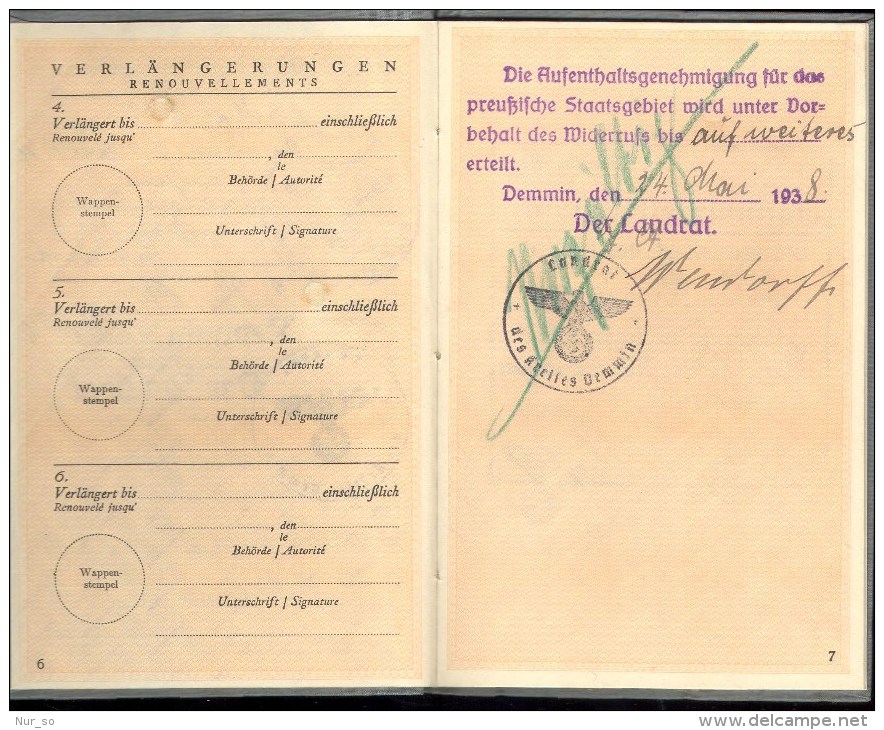 VERLÄNGERUNGEN
RENOUVELLEMENTS
4.
Verlängert bis einschließlich
Renouvelé jusqu'
, den
le
Behörde / Autorité
Wappen-
stempel
Unterschrift / Signature
5.
Verlängert bis einschließlich
Renouvelé jusqu'
, den
le
Behörde / Autorité
Wappen-
stempel
Unterschrift / Signature
6.
Verlängert bis einschließlich
Renouvelé jusqu'
, den
le
Behörde / Autorité
Wappen-
stempel
Unterschrift / Signature
6
Die Aufenthaltsgenehmigung für das
preußische Staatsgebiet wird unter Vor=
behalt des Widerrufs bis auf weiteres
erteilt.
Demmin, den 24. Mai 1938.
Der Landrat.
Wendorff
Landrat
des Kreises Demmin
7
Nur_so
www.delcampe.net